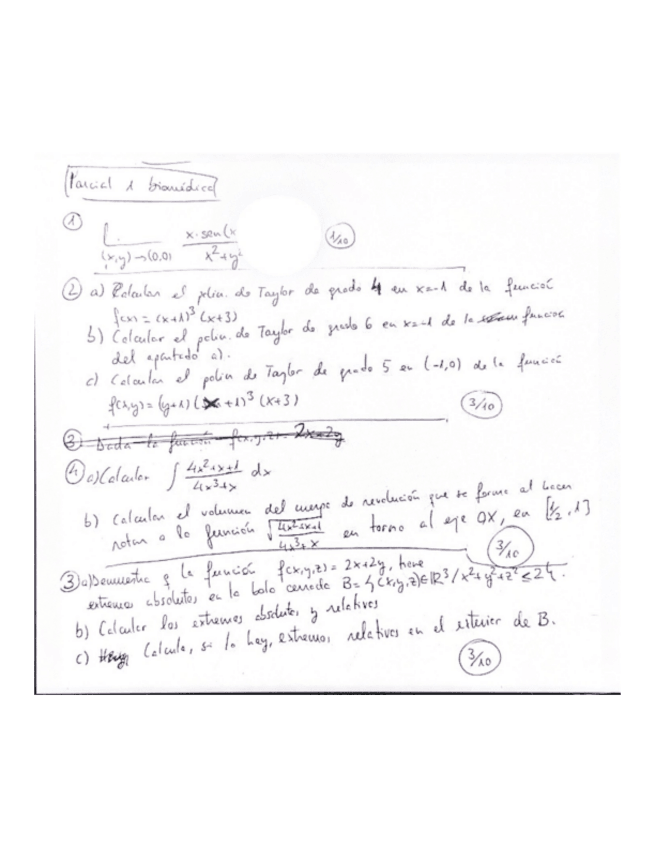 Parcial 1 biomédica
① L. (x,y)→(0,0) x·sen(x / x²+y² 1/10
② a) Calcular el polin. de Taylor de grado 4 en x=-1 de la función
f(x) = (x+1)³ (x+3)
b) Calcular el polin. de Taylor de grado 6 en x=-1 de la función
del apartado a).
c) Calcular el polin de Taylor de grado 5 en (-1,0) de la función
f(x,y) = (y+1) (x+1)³ (x+3) 3/10
3 Dada la función f(x,y,z) = 2x+2y
④ a) Calcular ∫ 4x²+x+1 / 4x³+x dx
b) Calcular el volumen del cuerpo de revolución que se forma al hacer
rotar a la función √ 4x²+x+1 / 4x³+x en torno al eje OX, en [1/2, 1]
3/10
③ a) Demuestra q la función f(x,y,z) = 2x+2y, tiene
extremos absolutos en la bola cerrada B={(x,y,z)∈ℝ³/x²+y²+z²≤2}.
b) Calcular los extremos absolutos y relativos
c) Calcula, si lo hay, extremos relativos en el exterior de B.
3/10